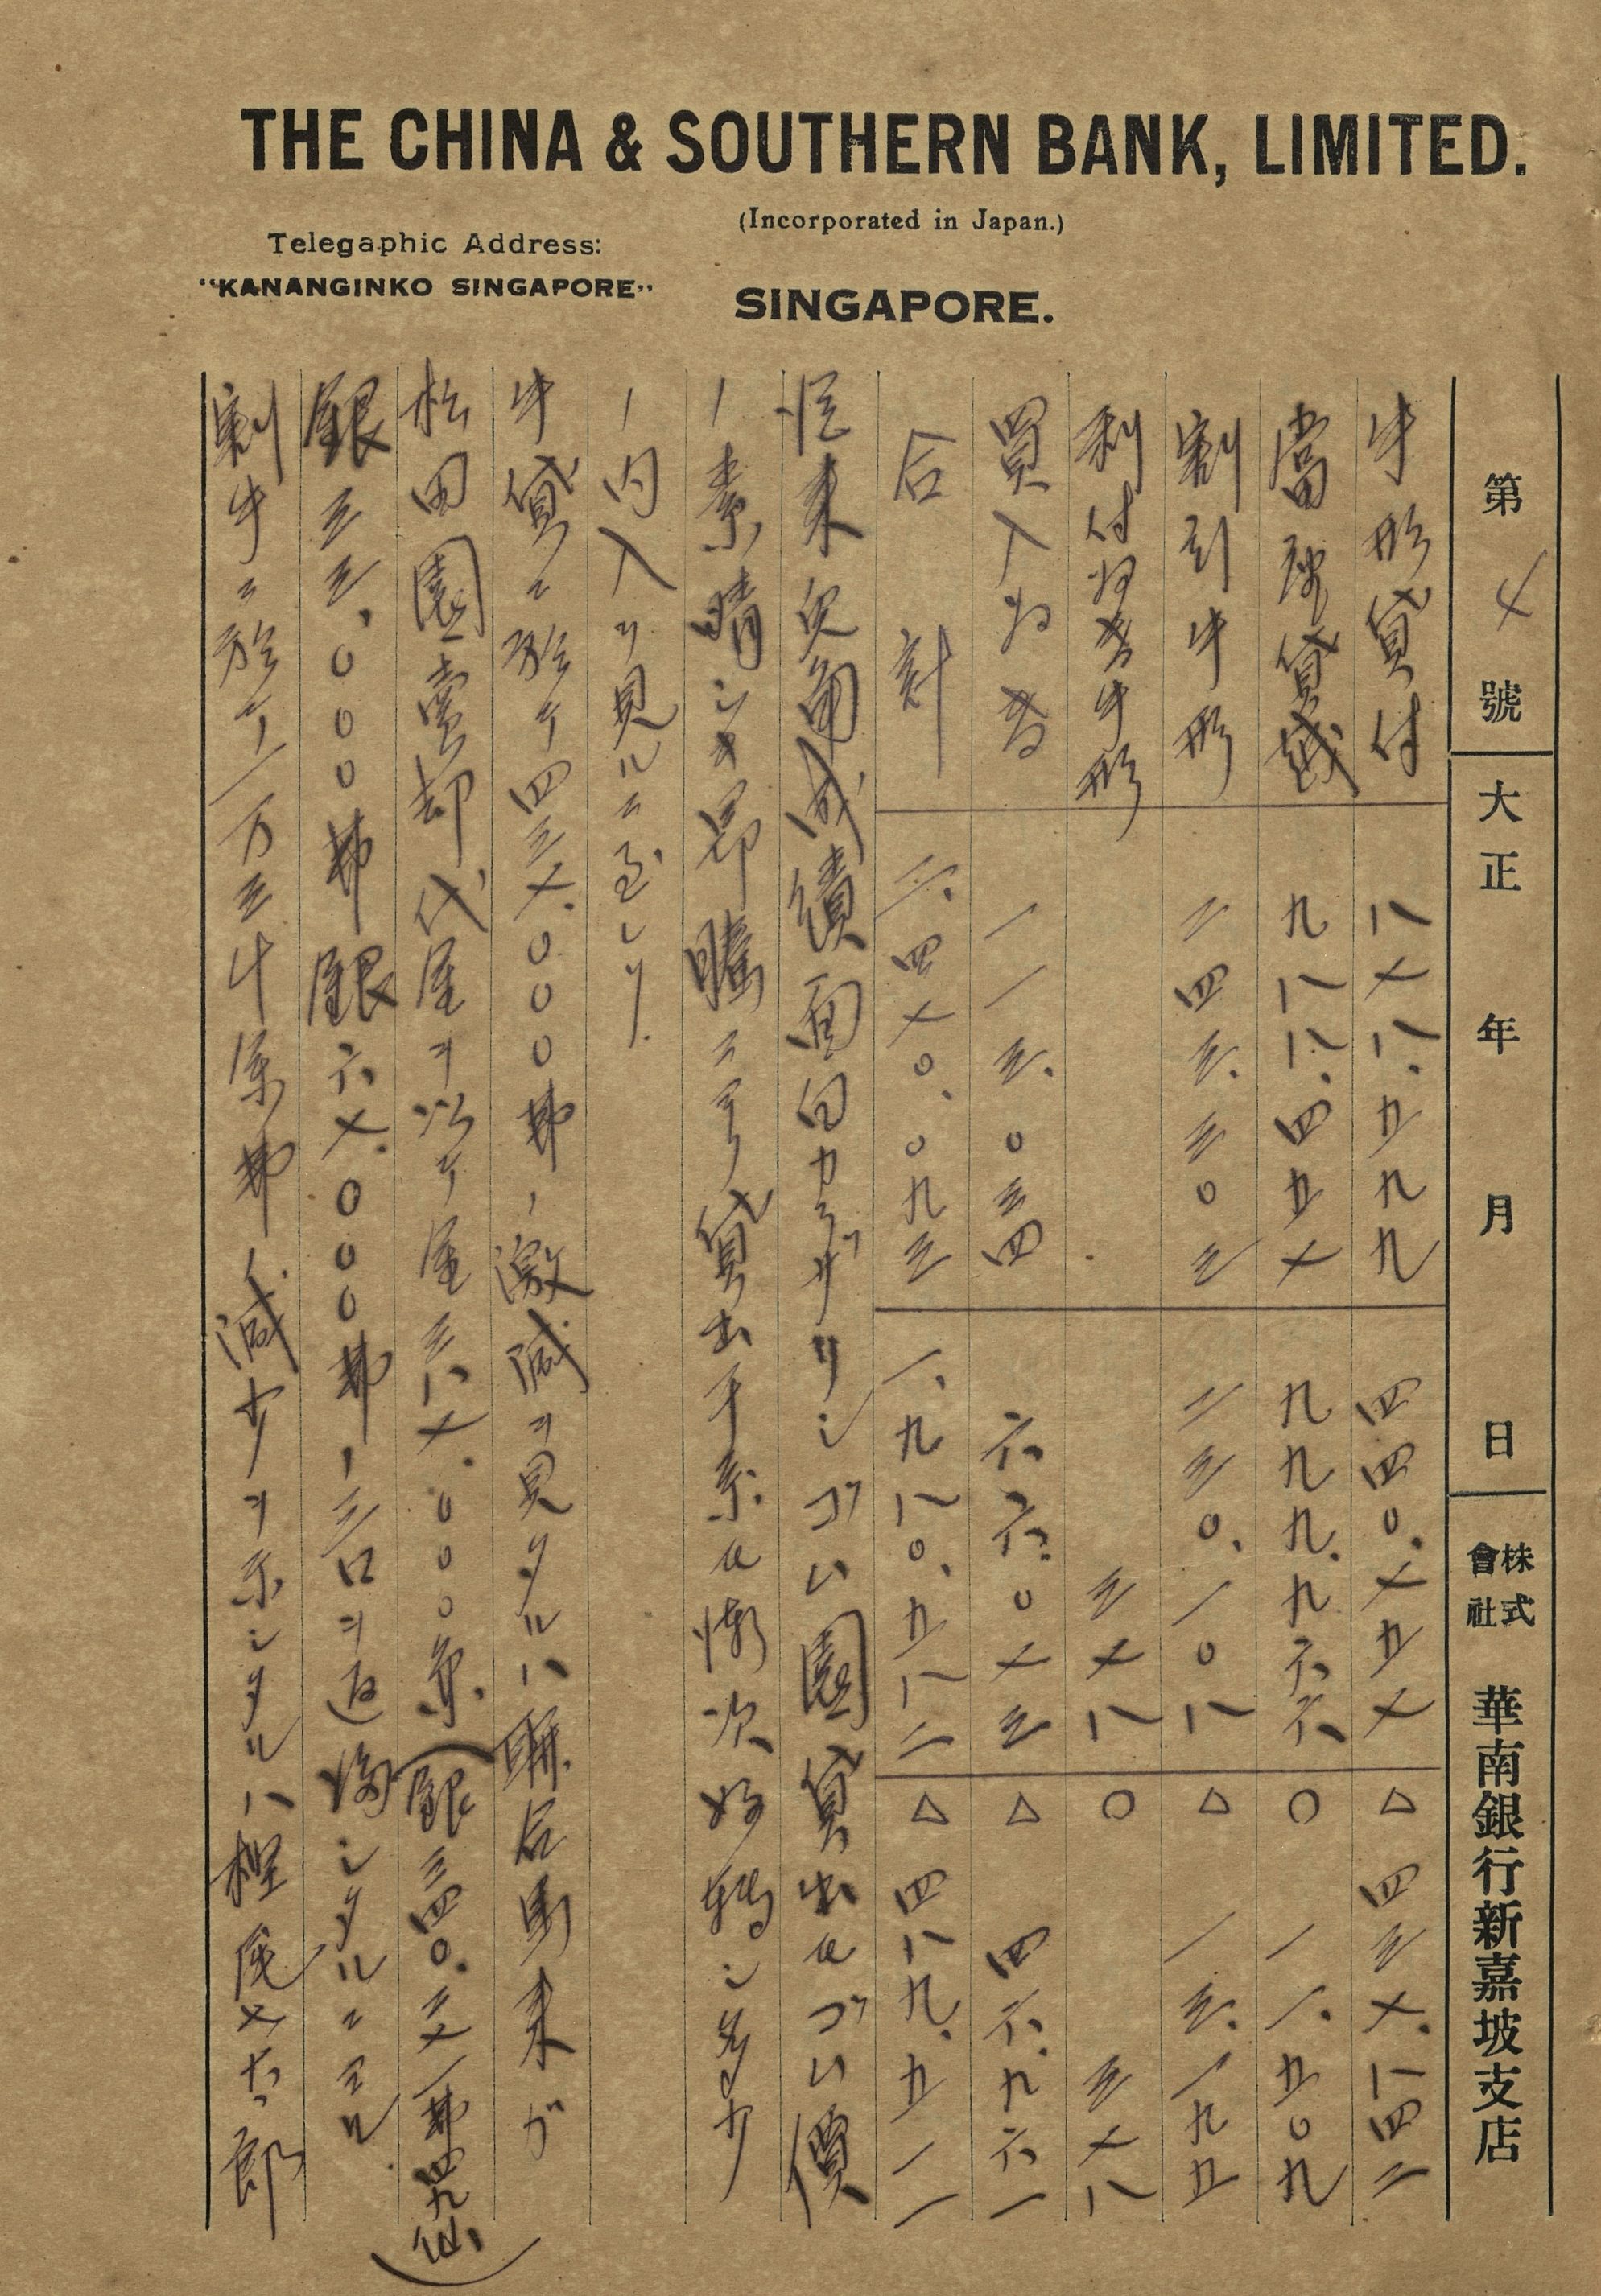 THE CHINA & SOUTHERN BANK, LIMITED.
(Incorporated in Japan.)
Telegaphic Address:
"KANANGINKO SINGAPORE"
SINGAPORE.
第 七 號 大正 年 月 日 株式會社 華南銀行新嘉坡支店
手形貸付 八七八.五九九 四四〇.七五七 △ 四三七.八四二
當座貸越 九八八.四五七 九九九.九六六 ○ 一一.五〇九
割引手形 二四三.三〇三 二三〇.一〇八 △ 一三.一九五
利付為替手形 三七八 ○ 三七八
買入為替 一一三.〇三四 六六.〇七三 △ 四六.九六一
合計 二.四七〇.〇九三 一.九八〇.五八二 △ 四八九.五一一
従来欠角成績面白カラザリシゴム園貸出モゴム價
ノ素晴シキ昂騰ニヨリ貸出干系モ漸次好轉シ多少
ノ内入ヲ見ルニ至レリ.
手貸ニ於テ四三七.〇〇〇弗ノ激減ヲ見タルハ聯合馬来ガ
松田園賣却代金ヲ以テ金三八七.〇〇〇余(銀三四〇.三七一弗四九仙)
銀三三.〇〇〇弗銀六七.〇〇〇弗ノ三口ヲ返済シタルニヨル.
割手ニ於テ一万三千余弗ノ減少ヲ示シタルハ樫尾七太郎